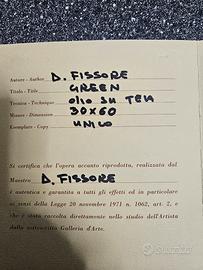 Autore - Author D. FISSORE
Titolo - Title GREEN
Tecnica - Technique olio su tela
Misure - Dimension 30x60
Esemplare - Copy UNICO
Si certifica che l'opera accanto riprodotta, realizzata dal
Maestro D. FISSORE
è autentica e garantita a tutti gli effetti ed in particolare
ai sensi della Legge 20 novembre 1971 n. 1062, art. 2, e
che è stata raccolta direttamente nello studio dell'Artista
dalla sottoscritta Galleria d'Arte.
subito